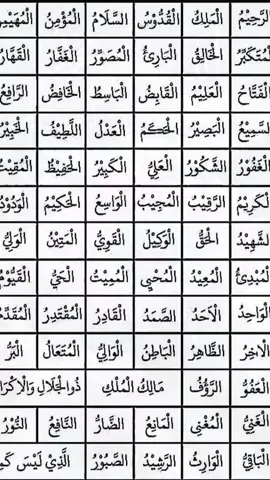 الرَّحِيْمُ الْمَلِكُ الْقُدُّوْسُ السَّلَامُ الْمُؤْمِنُ الْمُهَيْمِ
الْمُتَكَبِّرُ الْخَالِقُ الْبَارِئُ الْمُصَوِّرُ الْغَفَّارُ الْقَهَّارُ
الْفَتَّاحُ الْعَلِيْمُ الْقَابِضُ الْبَاسِطُ الْخَافِضُ الرَّافِعُ
السَّمِيْعُ الْبَصِيْرُ الْحَكَمُ الْعَدْلُ اللَّطِيْفُ الْخَبِيْرُ
الْغَفُوْرُ الشَّكُوْرُ الْعَلِيُّ الْكَبِيْرُ الْحَفِيْظُ الْمُقِيْتُ
الْكَرِيْمُ الرَّقِيْبُ الْمُجِيْبُ الْوَاسِعُ الْحَكِيْمُ الْوَدُوْدُ
الشَّهِيْدُ الْحَقُّ الْوَكِيْلُ الْقَوِيُّ الْمَتِيْنُ الْوَلِيُّ
الْمُبْدِئُ الْمُعِيْدُ الْمُحْيِى الْمُمِيْتُ الْحَيُّ الْقَيُّوْمُ
الْوَاحِدُ الْاَحَدُ الصَّمَدُ الْقَادِرُ الْمُقْتَدِرُ الْمُقَدِّمُ
الْاٰخِرُ الظَّاهِرُ الْبَاطِنُ الْوَالِيُ الْمُتَعَالُ الْبَرُّ
الْعَفُوُّ الرَّؤُفُ مَالِكُ الْمُلْكِ ذُوالْجَلَالِ وَالْاِكْرَا
الْغَنِيُّ الْمُغْنِيُ الْمَانِعُ الضَّارُّ النَّافِعُ النُّوْرُ
الْبَاقِيُ الْوَارِثُ الرَّشِيْدُ الصَّبُوْرُ الَّذِيْ لَيْسَ كَمِ